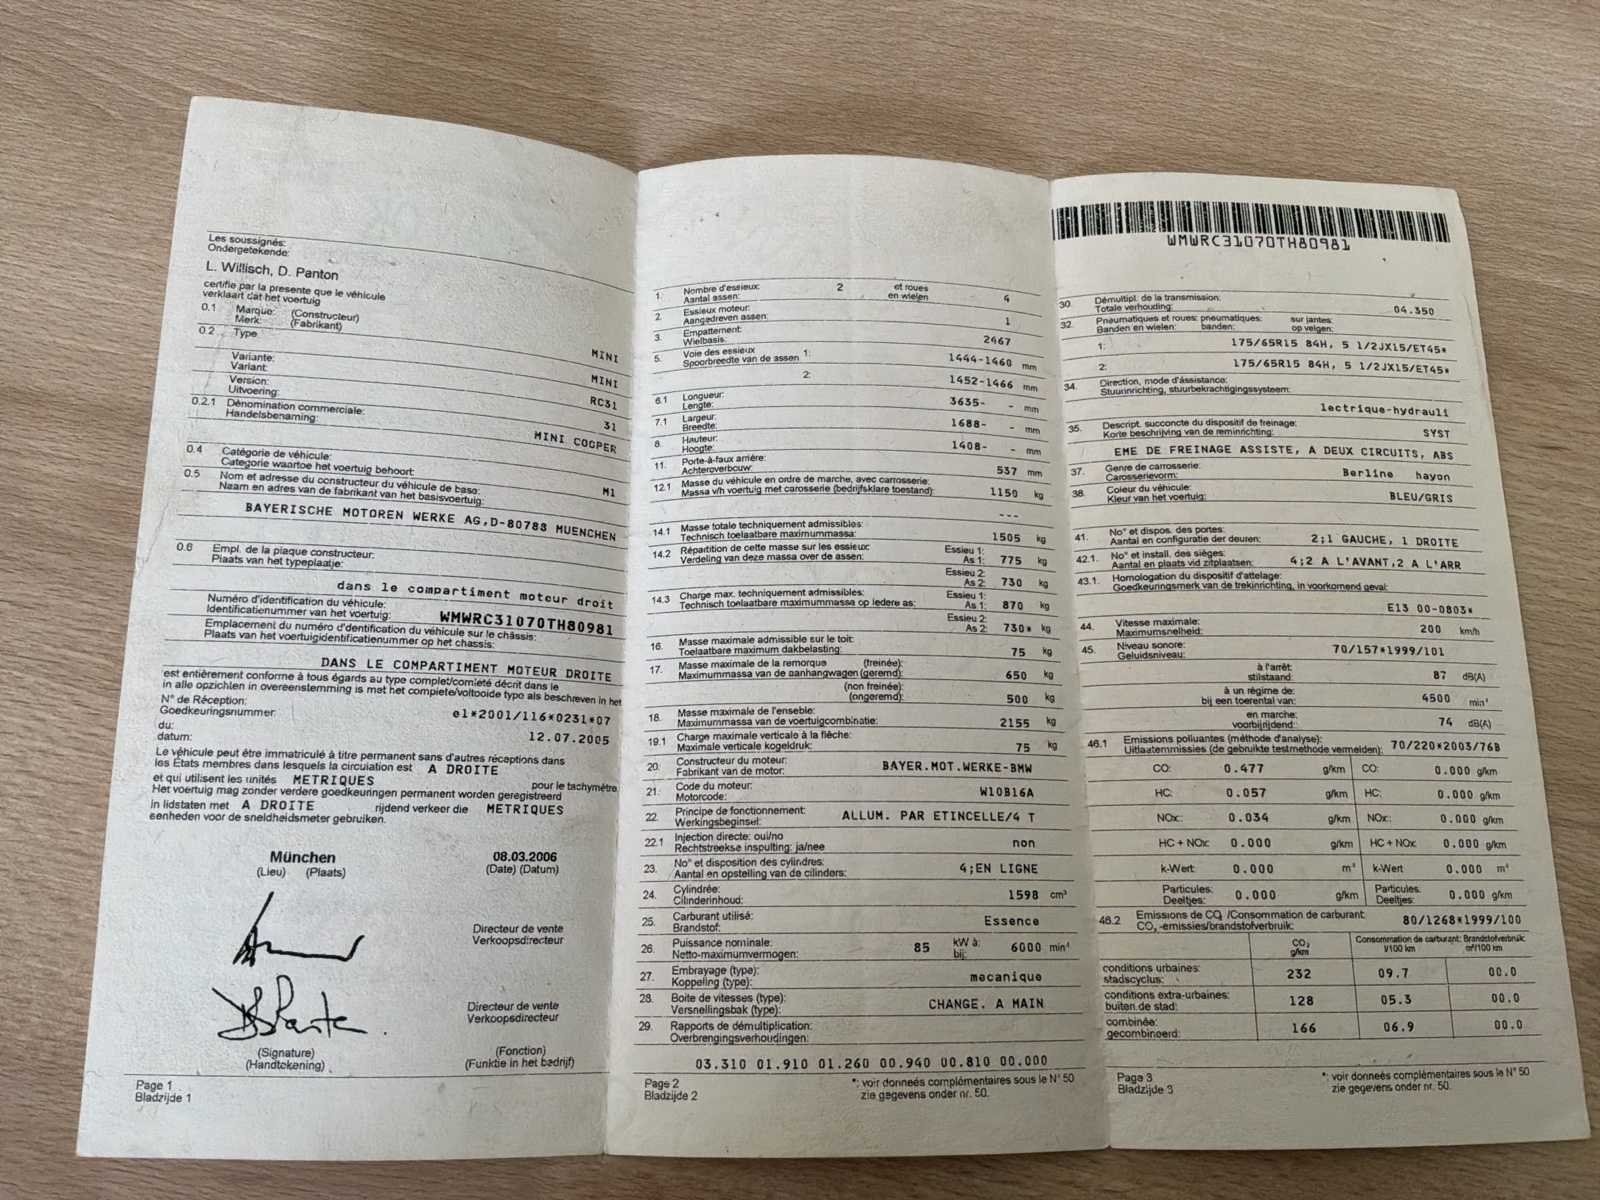 Les soussignés:
Ondergetekende:
L. Willisch, D. Panton
certifie par la presente que le véhicule
verklaart dat het voertuig
0.1 Marque: (Constructeur)
Merk: (Fabrikant)
MINI
0.2 Type
MINI
Variante:
Variant:
RC31
Version:
Uitvoering:
31
0.2.1 Dénomination commerciale:
Handelsbenaming:
MINI COOPER
0.4 Catégorie de véhicule:
Categorie waartoe het voertuig behoort:
M1
0.5 Nom et adresse du constructeur du véhicule de base:
Naam en adres van de fabrikant van het basisvoertuig:
BAYERISCHE MOTOREN WERKE AG,D-80788 MUENCHEN
0.6 Empl. de la plaque constructeur:
Plaats van het typeplaatje:
dans le compartiment moteur droit
Numéro d'identification du véhicule:
Identificatienummer van het voertuig: WMWRC31070TH80981
Emplacement du numéro d'dentification du véhicule sur le châssis:
Plaats van het voertuigidentificatienummer op het chassis:
DANS LE COMPARTIMENT MOTEUR DROITE
est entièrement conforme à tous égards au type complet/comlété décrit dans le
in alle opzichten in overeenstemming is met het complete/voltooide type als beschreven in het
N° de Réception:
Goedkeuringsnummer e1*2001/116*0231*07
du:
datum: 12.07.2005
Le véhicule peut être immatriculé à titre permanent sans d'autres réceptions dans
les États membres dans lesquels la circulation est A DROITE
et qui utilisent les unités METRIQUES pour le tachymètre
Het voertuig mag zonder verdere goedkeuringen permanent worden geregistreerd
in lidstaten met A DROITE rijdend verkeer die METRIQUES
eenheden voor de snelheidsmeter gebruiken.
München 08.03.2006
(Lieu) (Plaats) (Date) (Datum)
Directeur de vente
Verkoopsdirecteur
Directeur de vente
Verkoopsdirecteur
(Signature) (Fonction)
(Handtekening) (Funktie in het bedrijf)
Page 1
Bladzijde 1
1. Nombre d'essieux: 2 et roues 4
Aantal assen: en wielen
2. Essieux moteur: 1
Aangedreven assen:
3. Empattement: 2467
Wielbasis:
5. Voie des essieux 1: 1444-1460 mm
Spoorbreedte van de assen
2: 1452-1466 mm
6.1 Longueur: 3635- - mm
Lengte:
7.1 Largeur: 1688- - mm
Breedte:
8. Hauteur: 1408- - mm
Hoogte:
11. Porte-à-faux arrière: 537 mm
Achteroverbouw:
12.1 Masse du véhicule en ordre de marche, avec carrosserie: 1150 kg
Massa v/h voertuig met carosserie (bedrijfsklare toestand):
---
14.1 Masse totale techniquement admissibles: 1505 kg
Technisch toelaatbare maximummassa:
14.2 Répartition de cette masse sur les essieux Essieu 1: 775 kg
Verdeling van deze massa over de assen: As 1:
Essieu 2: 730 kg
As 2:
14.3 Charge max. techniquement admissibles: Essieu 1: 870 kg
Technisch toelaatbare maximummassa op ledere as: As 1:
Essieu 2: 730* kg
As 2:
16. Masse maximale admissible sur le toit: 75 kg
Toelaatbare maximum dakbelasting:
17. Masse maximale de la remorque (freinée): 650 kg
Maximummassa van de aanhangwagen (geremd):
(non freinée): 500 kg
(ongeremd):
18. Masse maximale de l'enseble: 2155 kg
Maximummassa van de voertuigcombinatie:
19.1 Charge maximale verticale à la flèche: 75 kg
Maximale verticale kogeldruk:
20. Constructeur du moteur: BAYER.MOT.WERKE-BMW
Fabrikant van de motor:
21. Code du moteur: W10B16A
Motorcode:
22. Principe de fonctionnement: ALLUM. PAR ETINCELLE/4 T
Werkingsbeginsel:
22.1 Injection directe: oui/no non
Rechtstreekse inspuiting: ja/nee
23. No° et disposition des cylindres: 4;EN LIGNE
Aantal en opstelling van de cilinders:
24. Cylindrée: 1598 cm³
Cilinderinhoud:
25. Carburant utilisé: Essence
Brandstof:
26. Puissance nominale: 85 kW à: 6000 min⁻¹
Netto-maximumvermogen: bij:
27. Embrayage (type): mecanique
Koppeling (type):
28. Boite de vitesses (type): CHANGE. A MAIN
Versnellingsbak (type):
29. Rapports de démultiplication:
Overbrengingsverhoudingen:
03.310 01.910 01.260 00.940 00.810 00.000
Page 2 *: voir donneés complémentaires sous le N° 50
Bladzijde 2 zie gegevens onder nr. 50.
WMWRC31070TH80981
30. Démultipl. de la transmission: 04.350
Totale verhouding:
32. Pneumatiques et roues: pneumatiques: sur jantes:
Banden en wielen: banden: op velgen:
1: 175/65R15 84H, 5 1/2JX15/ET45*
2: 175/65R15 84H, 5 1/2JX15/ET45*
34. Direction, mode d'ássistance:
Stuurinrichting, stuurbekrachtigingssysteem:
lectrique-hydrauli
35. Descript. succoncte du dispositif de freinage: SYST
Korte beschrijving van de reminrichting:
EME DE FREINAGE ASSISTE, A DEUX CIRCUITS, ABS
37. Genre de carrosserie: Berline hayon
Carosserievorm:
38. Coleur du véhicule: BLEU/GRIS
Kleur van het voertuig:
41. No° et dispos. des portes: 2;1 GAUCHE, 1 DROITE
Aantal en configuratie der deuren:
42.1. No° et install. des sièges: 4;2 A L'AVANT,2 A L'ARR
Aantal en plaats vid zitplaatsen:
43.1. Homologation du dispositif d'attelage:
Goedkeuringsmerk van de trekinrichting, in voorkomend geval:
E13 00-0803*
44. Vitesse maximale: 200 km/h
Maximumsnelheid:
45. Niveau sonore: 70/157*1999/101
Geluidsniveau:
à l'arrêt: 87 dB(A)
stilstaand:
à un régime de: 4500 min⁻¹
bij een toerental van:
en marche: 74 dB(A)
voorbijrijdend:
46.1 Emissions polluantes (méthode d'analyse): 70/220*2003/76B
Uitlaatemmissies (de gebruikte testmethode vermelden):
CO: 0.477 g/km CO: 0.000 g/km
HC: 0.057 g/km HC: 0.000 g/km
NOx: 0.034 g/km NOx: 0.000 g/km
HC + NOx: 0.000 g/km HC + NOx: 0.000 g/km
k-Wert: 0.000 m⁻¹ k-Wert 0.000 m⁻¹
Particules: 0.000 g/km Particules: 0.000 g/km
Deeltjes: Deeltjes:
46.2 Emissions de CO₂ /Consommation de carburant: 80/1268*1999/100
CO₂ -emissies/brandstofverbruik:
CO₂ Consommation de carburant: Brandstofverbruik:
g/km l/100 km m³/100 km
conditions urbaines: 232 09.7 00.0
stadscyclus:
conditions extra-urbaines: 128 05.3 00.0
buiten de stad:
combinée: 166 06.9 00.0
gecombineerd:
Page 3 *: voir donneés complémentaires sous le N° 50
Bladzijde 3 zie gegevens onder nr. 50.